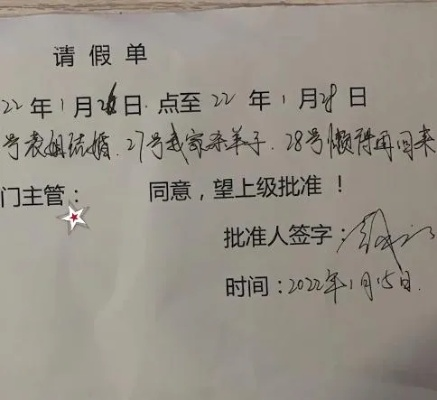 请假单
22年1月26日.点至22年1月28日
号表姐结婚.27号我家杀羊子.28号懒得再回来
门主管: 同意,望上级批准!
批准人签字:
时间:2022年1月15日.